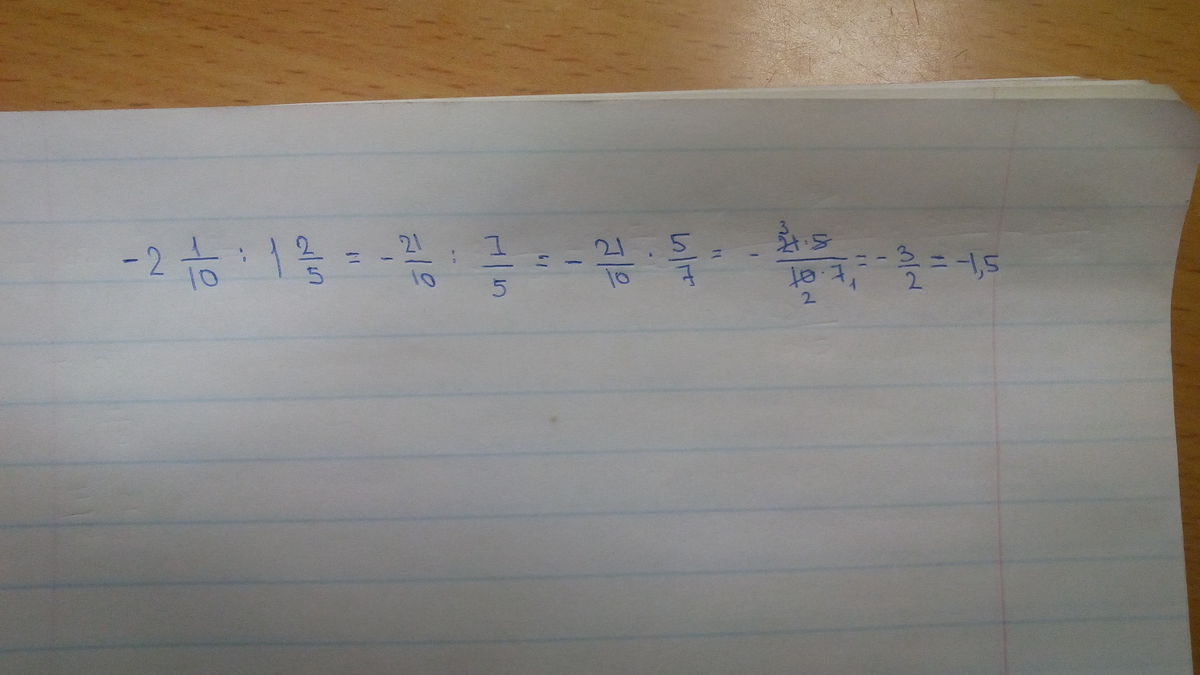 -2 1/10 : 1 2/5 = -21/10 : 7/5 = -21/10 · 5/7 = - 3 21·5/10·7 2 1 = -3/2 = -1,5